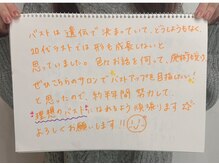 バストは遺伝で決まっていて、どうしようもなく、
20代ラストでは形も成長しないと
思っていました。色々お話を伺って、施術を受け
ぜひこちらのサロンでバストアップを目指したい!
と思ったので、約半年間努力して
理想のバストになれるよう頑張ります
よろしくお願いします!!